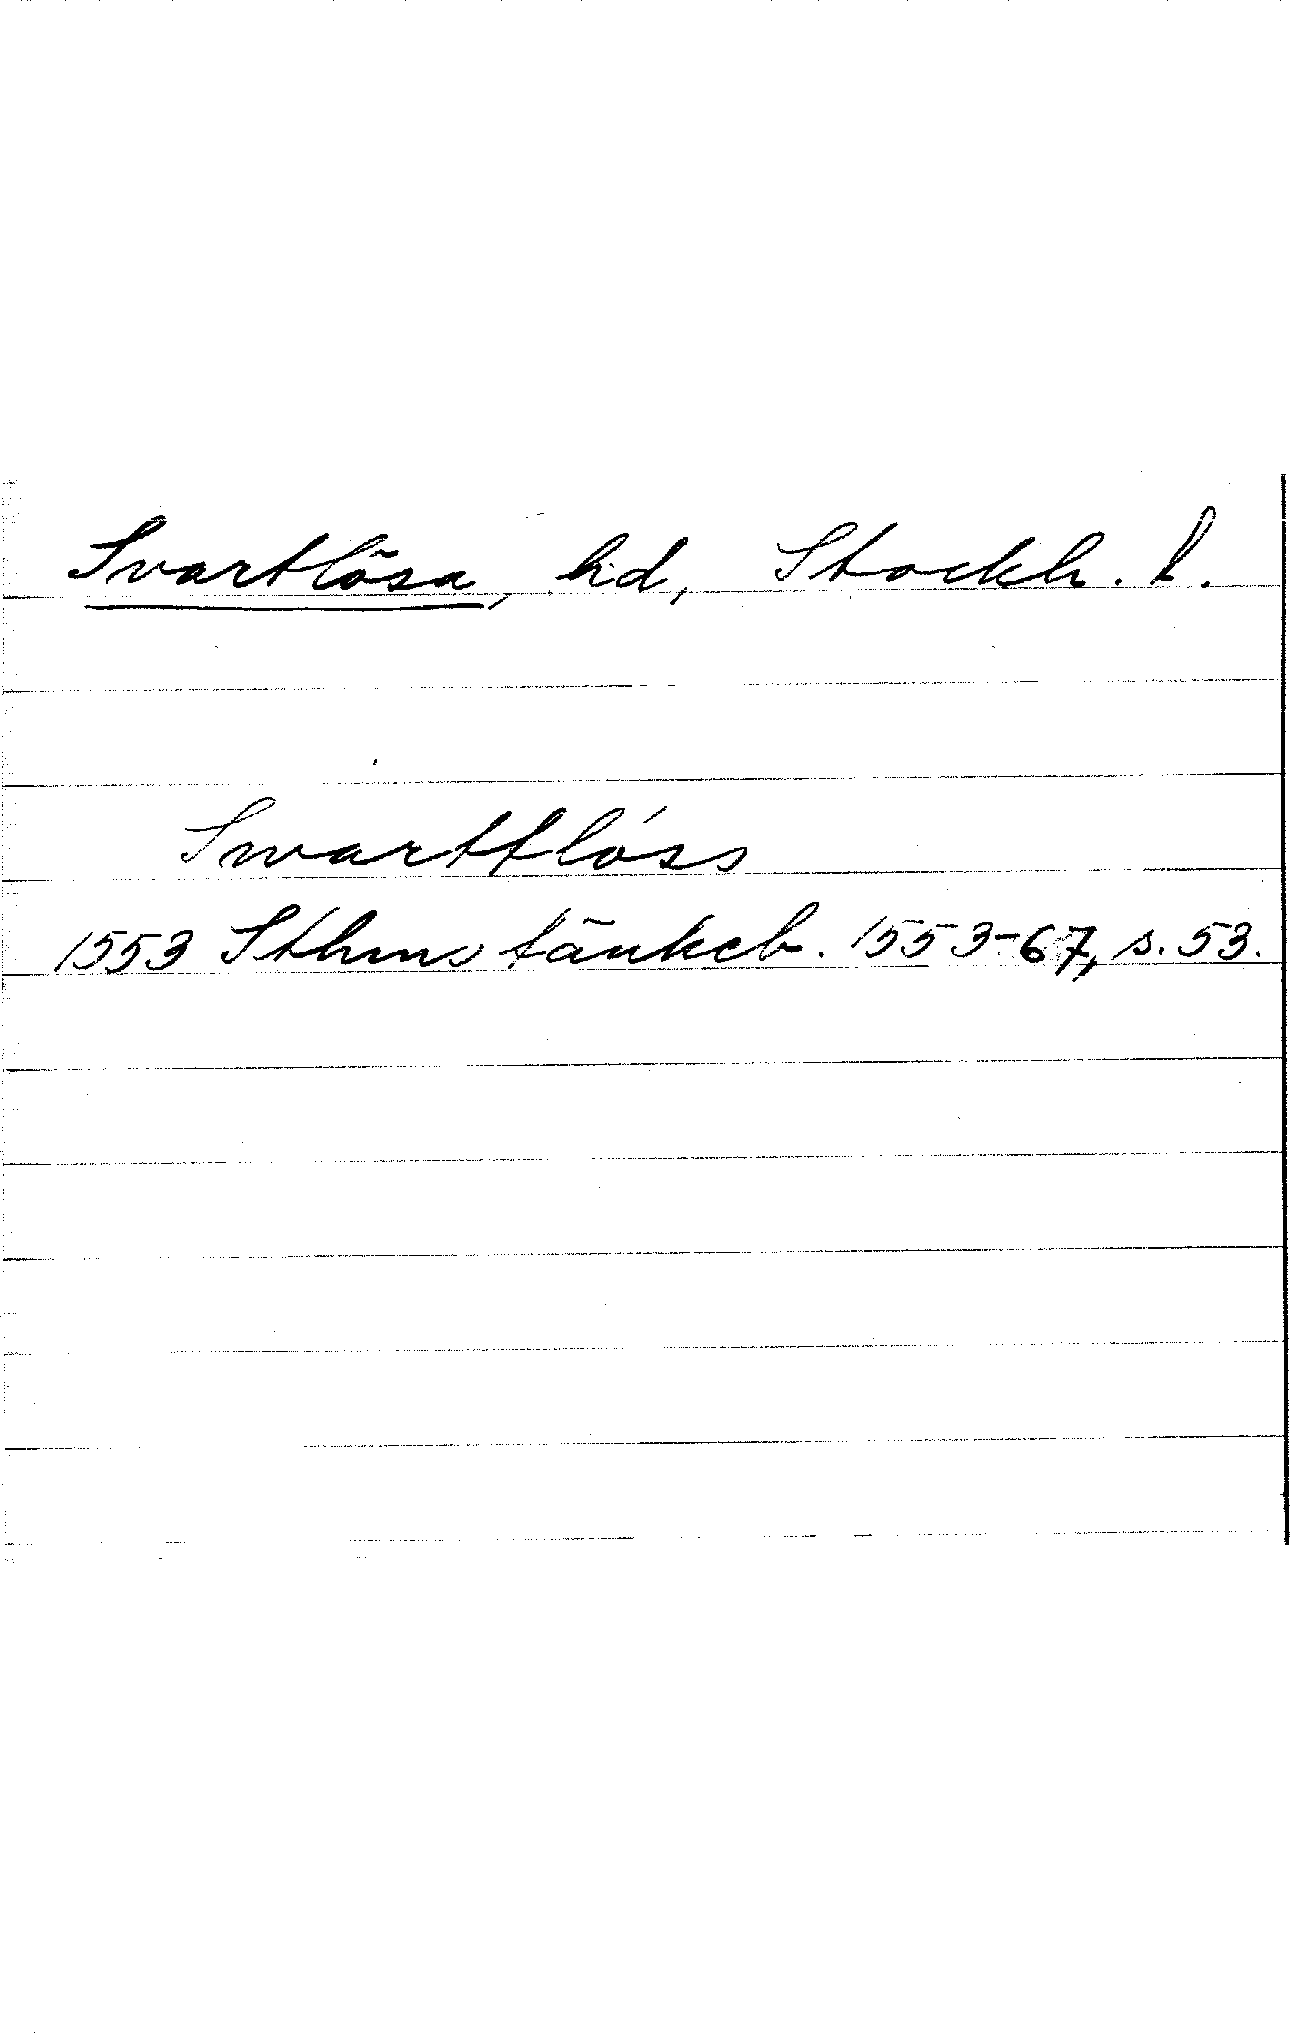 Svartlösa, hd, Stockh. l.
Swarttlóss
1553 Sthms tänkeb. 1553-67, s. 53.